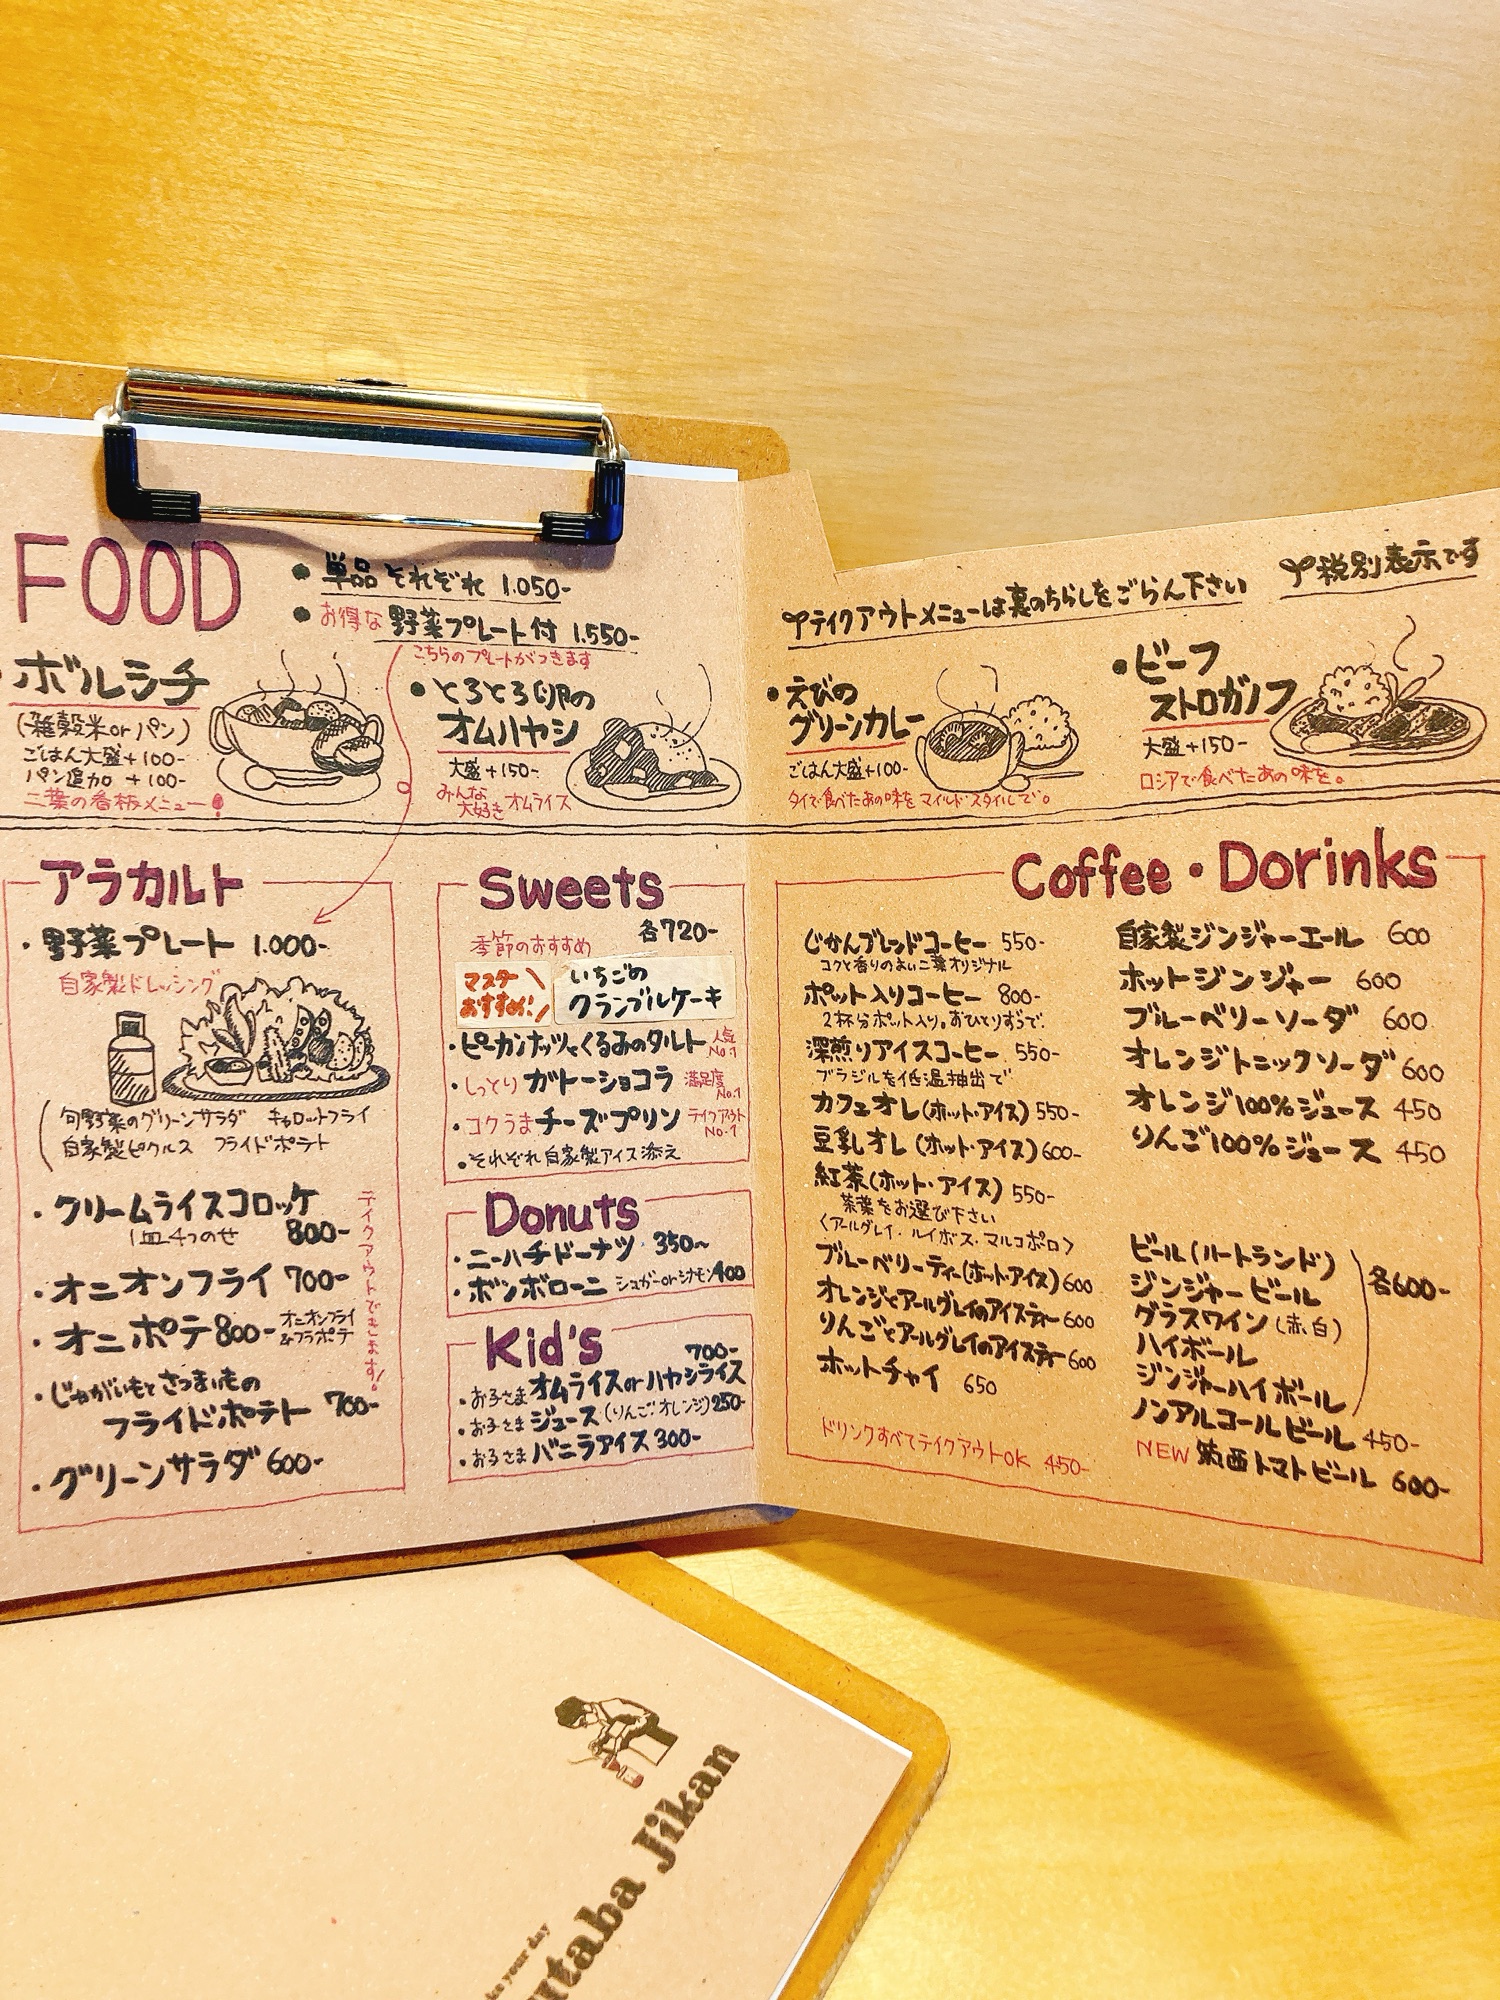 FOOD
• 単品それぞれ 1.050-
• お得な 野菜プレート付 1.550-
こちらのプレートがつきます
ボルシチ
(雑穀米orパン)
ごはん大盛+100-
パン追加 +100-
二葉の看板メニュー!
• とろとろ卵の
オムハヤシ
大盛+150-
みんな大好き オムライス
テイクアウトメニューは裏のちらしをごらん下さい
税別表示です
• えびの
グリーンカレー
ごはん大盛+100-
タイで食べたあの味をマイルドスタイルで。
• ビーフ
ストロガノフ
大盛+150-
ロシアで食べたあの味を。
アラカルト
・野菜プレート 1.000-
自家製ドレッシング
旬野菜のグリーンサラダ キャロットフライ
自家製ピクルス フライドポテト
・クリームライスコロッケ
1皿4つのせ 800-
・オニオンフライ 700-
・オニポテ 800- オニオンフライ&フラポテ
・じゃがいもとさつまいもの
フライドポテト 700-
・グリーンサラダ 600-
テイクアウトできます!
Sweets
各720-
季節のおすすめ
マスターおすすめ!
いちごの
クランブルケーキ
・ピーカンナッツとくるみのタルト 人気No.1
・しっとり ガトーショコラ 満足度No.1
・コクうま チーズプリン テイクアウトNo.1
• それぞれ自家製アイス添え
Donuts
・ニーハチドーナツ 350~
・ボンボローニ シュガーorシナモン 400
Kid's
700-
・お子さま オムライスorハヤシライス
・お子さま ジュース(りんご・オレンジ) 250-
・お子さま バニラアイス 300-
Coffee・Dorinks
じかんブレンドコーヒー 550-
コクと香りのよい二葉オリジナル
ポット入りコーヒー 800-
2杯分ポット入り。おひとりずつで。
深煎りアイスコーヒー 550-
ブラジルを低温抽出で
カフェオレ(ホット・アイス) 550-
豆乳オレ(ホット・アイス) 600-
紅茶(ホット・アイス) 550-
茶葉をお選び下さい
〈アールグレイ・ルイボス・マルコポーロ〉
ブルーベリーティー(ホット・アイス) 600
オレンジとアールグレイのアイスティー 600
りんごとアールグレイのアイスティー 600
ホットチャイ 650
ドリンクすべてテイクアウトOK 450-
自家製ジンジャーエール 600
ホットジンジャー 600
ブルーベリーソーダ 600
オレンジトニックソーダ 600
オレンジ100%ジュース 450
りんご100%ジュース 450
ビール(ハートランド)
ジンジャービール
グラスワイン(赤、白)
ハイボール
ジンジャーハイボール
各600-
ノンアルコールビール 450-
NEW 筑西トマトビール 600-
your day
utaba Jikan